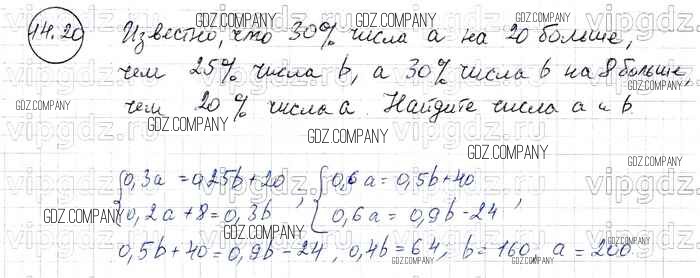 14.20 Известно, что 30% числа a на 20 больше,
чем 25% числа b, а 30% числа b на 8 больше,
чем 20% числа a. Найдите числа a и b.
{0,3a = 0,25b + 20, {0,6a = 0,5b + 40
{0,2a + 8 = 0,3b , {0,6a = 0,9b - 24 ,
0,5b + 40 = 0,9b - 24, 0,4b = 64, b = 160, a = 200.
GDZ.COMPANY
vipgdz.ru